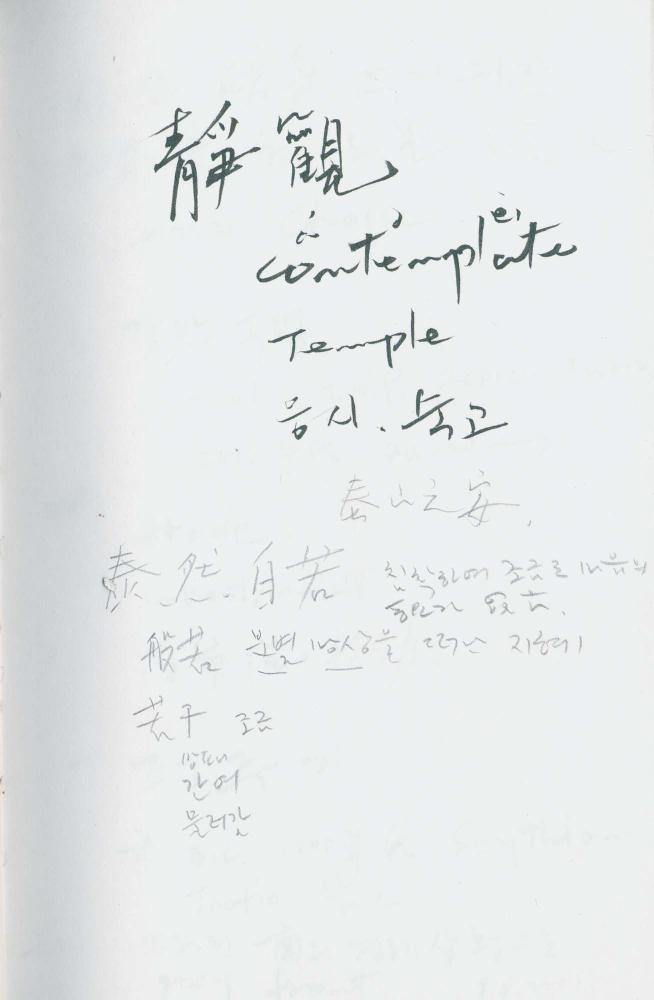 靜觀
contemplate
Temple
응시. 숙고
泰山之安.
泰然自若 침착하여 조금도 마음의
동요가 없음.
般若 분별 망상을 떠난 지혜
若干 조금
방패
간여
물러갈